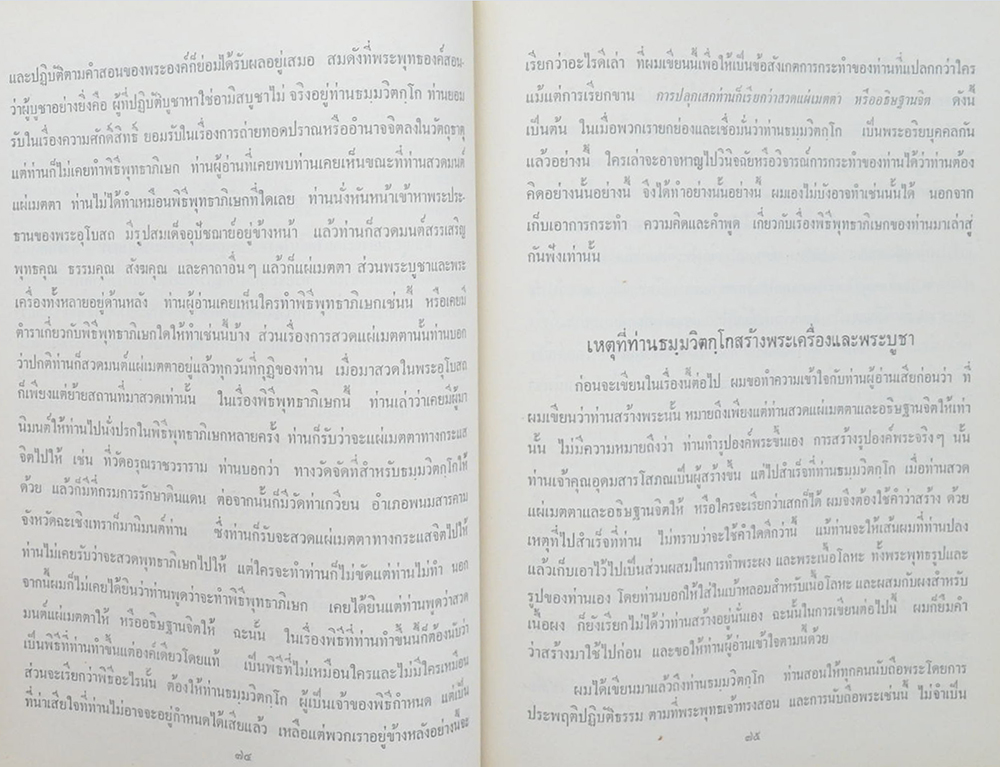 และปฏิบัติตามคำสอนของพระองค์ก็ย่อมได้รับผลอยู่เสมอ สมดังที่พระพุทธองค์สอน-
ว่าผู้บูชาอย่างยิ่งคือ ผู้ที่ปฏิบัติบูชาหาใช่อามิสบูชาไม่ จริงอยู่ท่านธมฺมวิตกฺโก ท่านยอม
รับในเรื่องความศักดิ์สิทธิ์ ยอมรับในเรื่องการถ่ายทอดปราณหรืออำนาจจิตลงในวัตถุธาตุ
แต่ท่านก็ไม่เคยทำพิธีพุทธาภิเษก ท่านผู้อ่านที่เคยพบท่านเคยเห็นขณะที่ท่านสวดมนต์
แผ่เมตตา ท่านไม่ได้ทำเหมือนพิธีพุทธาภิเษกที่ใดเลย ท่านนั่งหันหน้าเข้าหาพระประ-
ธานของพระอุโบสถ มีรูปสมเด็จอุปัชฌาย์อยู่ข้างหน้า แล้วท่านก็สวดมนต์สรรเสริญ
พุทธคุณ ธรรมคุณ สังฆคุณ และคาถาอื่น ๆ แล้วก็แผ่เมตตา ส่วนพระบูชาและพระ
เครื่องทั้งหลายอยู่ด้านหลัง ท่านผู้อ่านเคยเห็นใครทำพิธีพุทธาภิเษกเช่นนี้ หรือเคยมี
ตำราเกี่ยวกับพิธีพุทธาภิเษกใดให้ทำเช่นนี้บ้าง ส่วนเรื่องการสวดแผ่เมตตานั้นท่านบอก
ว่าปกติท่านก็สวดมนต์แผ่เมตตาอยู่แล้วทุกวันที่กุฏิของท่าน เมื่อมาสวดในพระอุโบสถ
ก็เพียงแต่ย้ายสถานที่มาสวดเท่านั้น ในเรื่องพิธีพุทธาภิเษกนี้ ท่านเล่าว่าเคยมีผู้มา
นิมนต์ให้ท่านไปนั่งปรกในพิธีพุทธาภิเษกหลายครั้ง ท่านก็รับว่าจะแผ่เมตตาทางกระแส
จิตไปให้ เช่น ที่วัดอรุณราชวราราม ท่านบอกว่า ทางวัดจัดที่สำหรับธมฺมวิตกฺโกให้
ด้วย แล้วก็มีที่กรมการรักษาดินแดน ต่อจากนั้นก็มีวัดท่าเกวียน อำเภอพนมสารคาม
จังหวัดฉะเชิงเทราก็มานิมนต์ท่าน ซึ่งท่านก็รับจะสวดแผ่เมตตาทางกระแสจิตไปให้
ท่านไม่เคยรับว่าจะสวดพุทธาภิเษกไปให้ แต่ใครจะทำท่านก็ไม่ขัดแต่ท่านไม่ทำ นอก
จากนี้ผมก็ไม่เคยได้ยินว่าท่านพูดว่าจะทำพิธีพุทธาภิเษก เคยได้ยินแต่ท่านพูดว่าสวด
มนต์แผ่เมตตาให้ หรืออธิษฐานจิตให้ ฉะนั้น ในเรื่องพิธีที่ท่านทำขึ้นนี้ก็ต้องนับว่า
เป็นพิธีที่ท่านทำขึ้นแต่องค์เดียวโดยแท้ เป็นพิธีที่ไม่เหมือนใครและไม่มีใครเหมือน
ส่วนจะเรียกว่าพิธีอะไรนั้น ต้องให้ท่านธมฺมวิตกฺโก ผู้เป็นเจ้าของพิธีกำหนด แต่เป็น
ที่น่าเสียใจที่ท่านไม่อาจจะอยู่กำหนดได้เสียแล้ว เหลือแต่พวกเราอยู่ข้างหลังอย่างนี้จะ
๗๔
เรียกว่าอะไรดีเล่า ที่ผมเขียนนี้เพื่อให้เป็นข้อสังเกตการกระทำของท่านที่แปลกกว่าใคร
แม้แต่การเรียกขาน การปลุกเสกท่านก็เรียกว่าสวดแผ่เมตตา หรืออธิษฐานจิต ดังนี้
เป็นต้น ในเมื่อพวกเรายกย่องและเชื่อมั่นว่าท่านธมฺมวิตกฺโก เป็นพระอริยบุคคลกัน
แล้วอย่างนี้ ใครเล่าจะอาจหาญไปวินิจฉัยหรือวิจารณ์การกระทำของท่านได้ว่าท่านต้อง
คิดอย่างนั้นอย่างนี้ จึงได้ทำอย่างนั้นอย่างนี้ ผมเองไม่บังอาจทำเช่นนั้นได้ นอกจาก
เก็บเอาการกระทำ ความคิดและคำพูด เกี่ยวกับเรื่องพิธีพุทธาภิเษกของท่านมาเล่าสู่
กันฟังเท่านั้น
เหตุที่ท่านธมฺมวิตกฺโกสร้างพระเครื่องและพระบูชา
ก่อนจะเขียนในเรื่องนี้ต่อไป ผมขอทำความเข้าใจกับท่านผู้อ่านเสียก่อนว่า ที่
ผมเขียนว่าท่านสร้างพระนั้น หมายถึงเพียงแต่ท่านสวดแผ่เมตตาและอธิษฐานจิตให้เท่า
นั้น ไม่มีความหมายถึงว่า ท่านทำรูปองค์พระขึ้นเอง การสร้างรูปองค์พระจริงๆ นั้น
ท่านเจ้าคุณอุดมสารโสภณเป็นผู้สร้างขึ้น แต่ไปสำเร็จที่ท่านธมฺมวิตกฺโก เมื่อท่านสวด
แผ่เมตตาและอธิษฐานจิตให้ หรือใครจะเรียกว่าเสกก็ได้ ผมจึงต้องใช้คำว่าสร้าง ด้วย
เหตุที่ไปสำเร็จที่ท่าน ไม่ทราบว่าจะใช้คำใดดีกว่านี้ แม้ท่านจะให้เส้นผมที่ท่านปลง
แล้วเก็บเอาไว้ไปเป็นส่วนผสมในการทำพระผง และพระเนื้อโลหะ ทั้งพระพุทธรูปและ
รูปของท่านเอง โดยท่านบอกให้ใส่ในเบ้าหลอมสำหรับเนื้อโลหะ และผสมกับผงสำหรับ
เนื้อผง ก็ยังเรียกไม่ได้ว่าท่านสร้างอยู่นั่นเอง ฉะนั้นในการเขียนต่อไปนี้ ผมก็ยืมคำ
ว่าสร้างมาใช้ไปก่อน และขอให้ท่านผู้อ่านเข้าใจตามนี้ด้วย
ผมได้เขียนมาแล้วถึงท่านธมฺมวิตกฺโก ท่านสอนให้ทุกคนนับถือพระโดยการ
ประพฤติปฏิบัติธรรม ตามที่พระพุทธเจ้าทรงสอน และการนับถือพระเช่นนี้ ไม่จำเป็น
๗๕